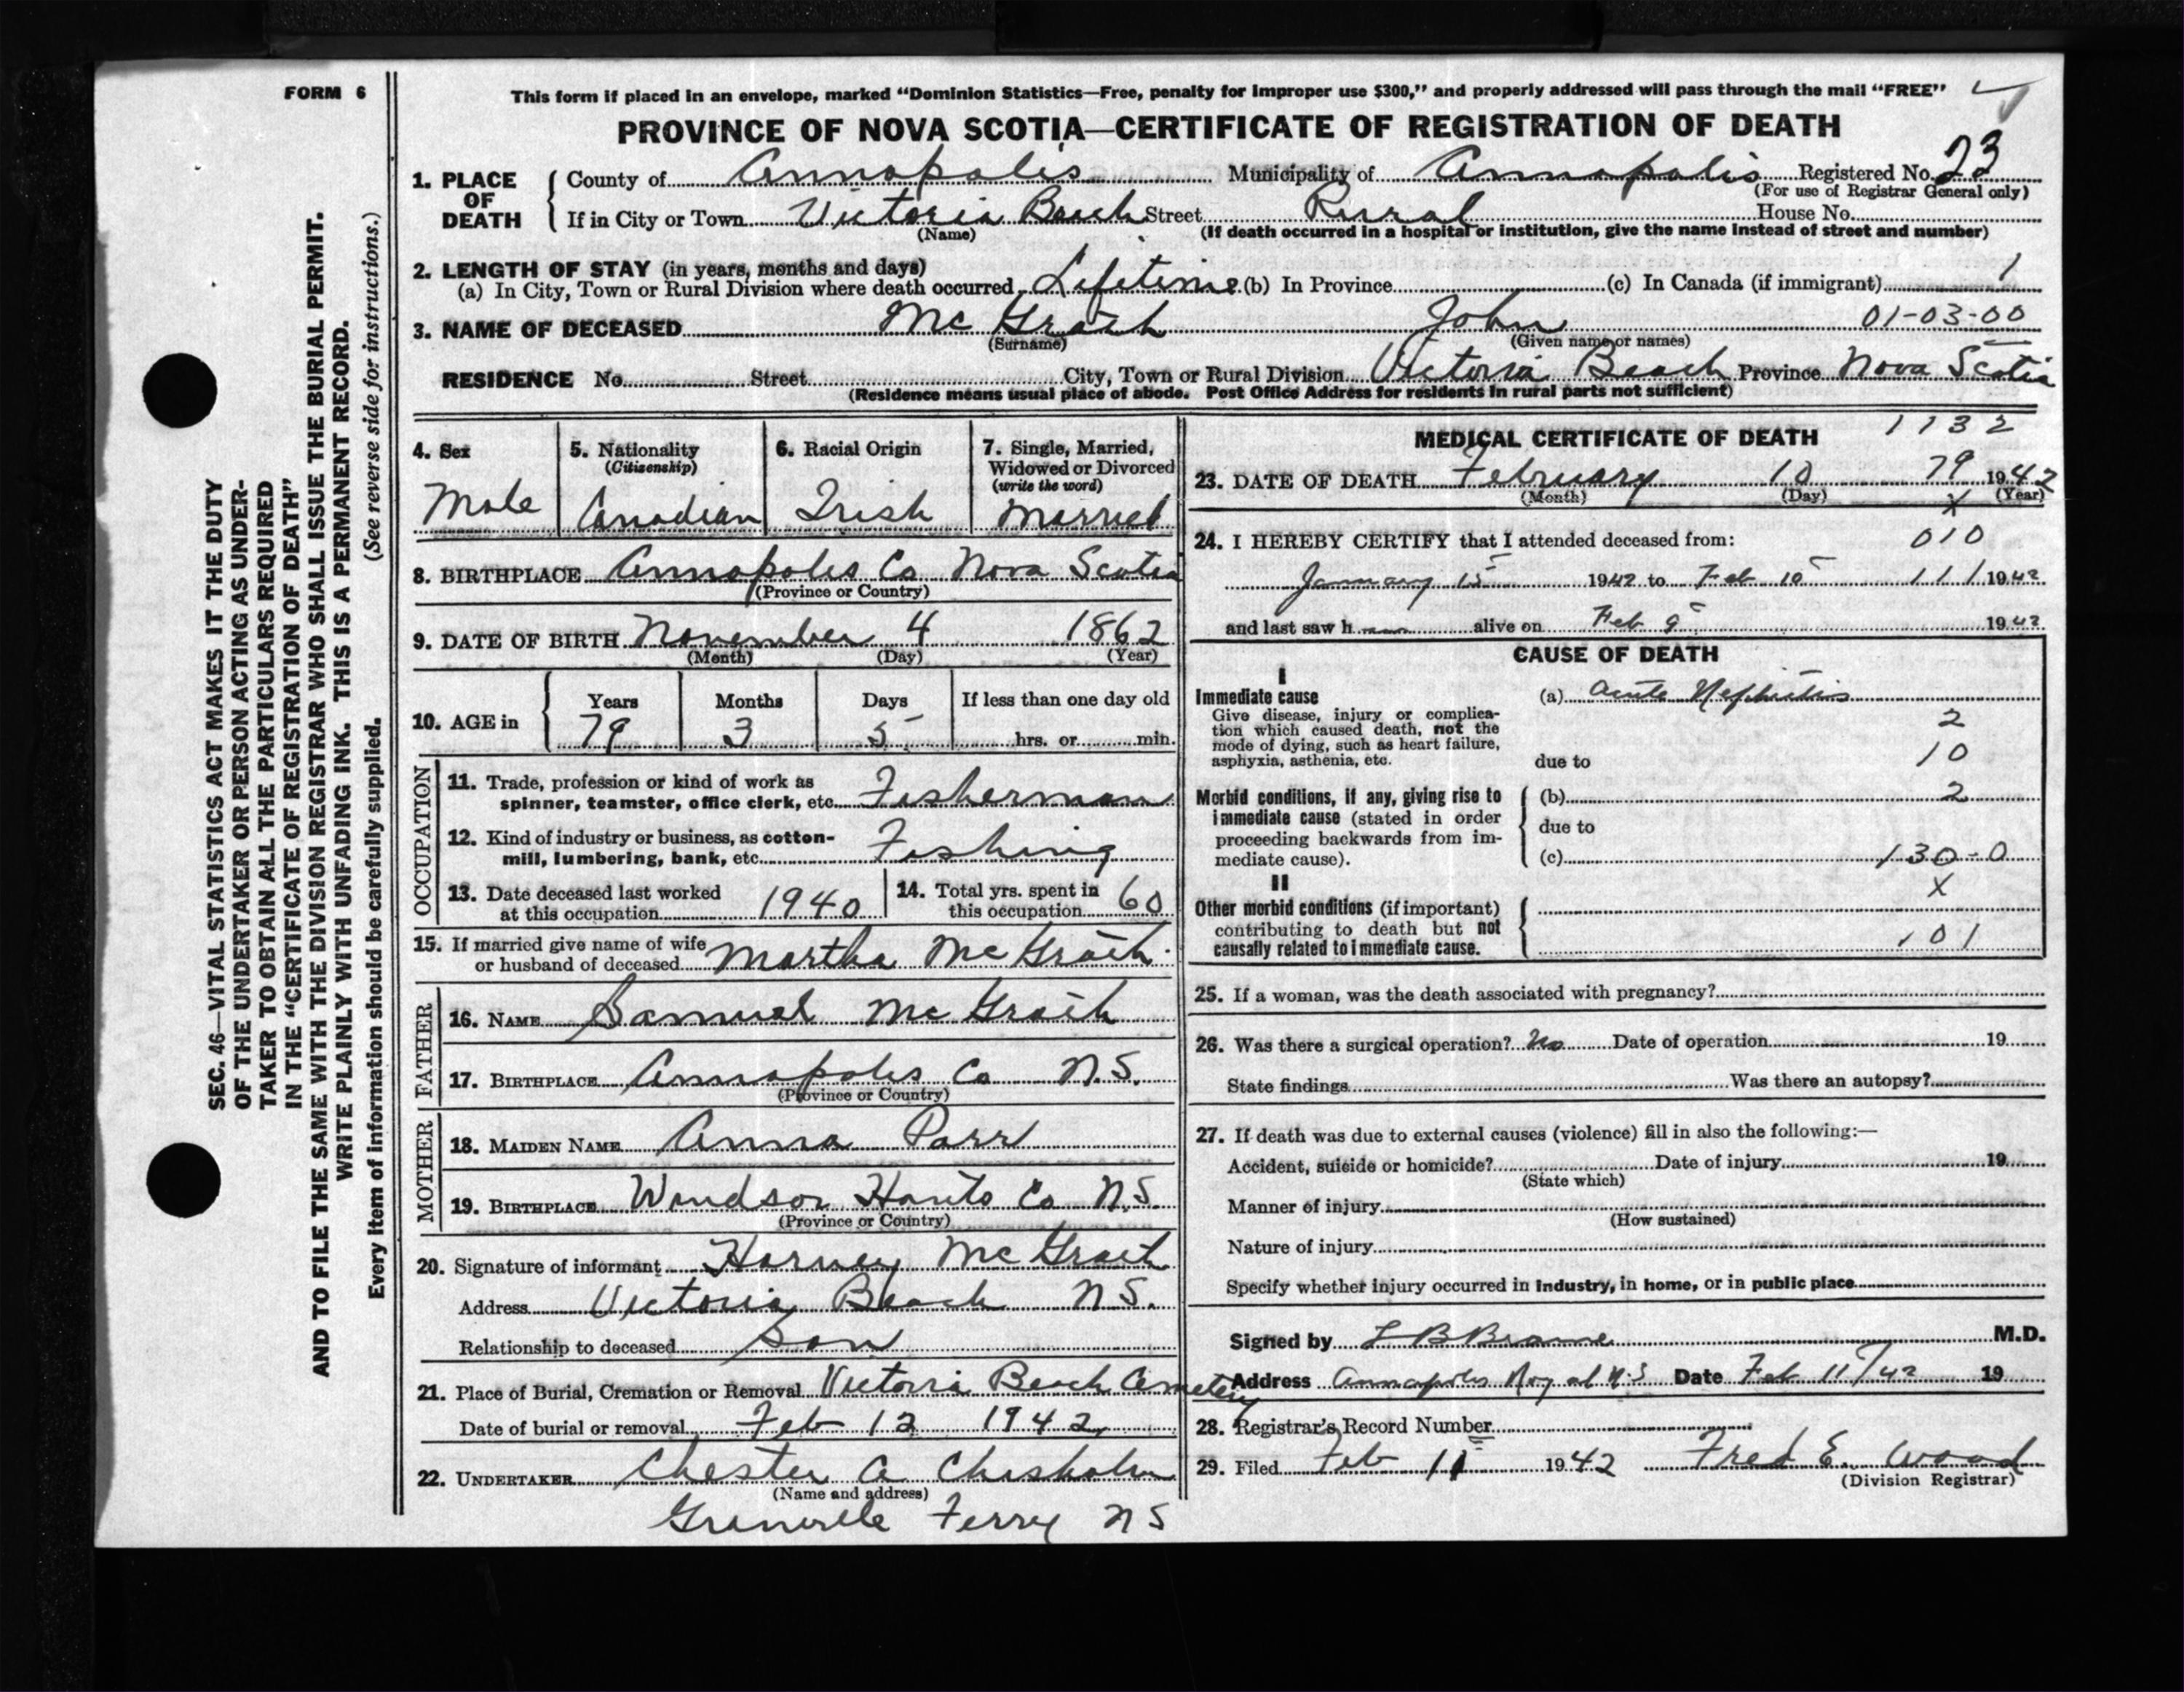 FORM 6
This form if placed in an envelope, marked “Dominion Statistics—Free, penalty for improper use $300,” and properly addressed will pass through the mail “FREE”
PROVINCE OF NOVA SCOTIA—CERTIFICATE OF REGISTRATION OF DEATH
SEC. 46—VITAL STATISTICS ACT MAKES IT THE DUTY
OF THE UNDERTAKER OR PERSON ACTING AS UNDER-
TAKER TO OBTAIN ALL THE PARTICULARS REQUIRED
IN THE “CERTIFICATE OF REGISTRATION OF DEATH”
AND TO FILE THE SAME WITH THE DIVISION REGISTRAR WHO SHALL ISSUE THE BURIAL PERMIT.
WRITE PLAINLY WITH UNFADING INK. THIS IS A PERMANENT RECORD.
Every item of information should be carefully supplied. (See reverse side for instructions.)
1. PLACE OF DEATH County of Annapolis Municipality of Annapolis Registered No. 23
(For use of Registrar General only)
If in City or Town Victoria Beach Street Rural House No.
(Name) (If death occurred in a hospital or institution, give the name instead of street and number)
2. LENGTH OF STAY (in years, months and days)
(a) In City, Town or Rural Division where death occurred Lifetime (b) In Province (c) In Canada (if immigrant) 1
3. NAME OF DECEASED Mc Grath John 01-03-00
(Surname) (Given name or names)
RESIDENCE No. Street City, Town or Rural Division Victoria Beach Province Nova Scotia
(Residence means usual place of abode. Post Office Address for residents in rural parts not sufficient)
4. Sex
Male
5. Nationality
(Citizenship)
Canadian
6. Racial Origin
Irish
7. Single, Married,
Widowed or Divorced
(write the word)
Married
8. BIRTHPLACE Annapolis Co Nova Scotia
(Province or Country)
9. DATE OF BIRTH November 4 1862
(Month) (Day) (Year)
10. AGE in Years Months Days If less than one day old
79 3 5 hrs. or min.
OCCUPATION
11. Trade, profession or kind of work as
spinner, teamster, office clerk, etc. Fisherman
12. Kind of industry or business, as cotton-
mill, lumbering, bank, etc. Fishing
13. Date deceased last worked
at this occupation 1940
14. Total yrs. spent in
this occupation 60
15. If married give name of wife
or husband of deceased Martha Mc Grath
FATHER
16. NAME Samuel Mc Grath
17. BIRTHPLACE Annapolis Co N.S.
(Province or Country)
MOTHER
18. MAIDEN NAME Anna Parr
19. BIRTHPLACE Windsor Hants Co N.S.
(Province or Country)
20. Signature of informant Harvey Mc Grath
Address Victoria Beach N.S.
Relationship to deceased Son
21. Place of Burial, Cremation or Removal Victoria Beach Cemetery
Date of burial or removal Feb 12 1942
22. UNDERTAKER Chester A Chisholm
(Name and address)
Granville Ferry N S
MEDICAL CERTIFICATE OF DEATH 1132
23. DATE OF DEATH February 10 79 1942
(Month) (Day) X (Year)
24. I HEREBY CERTIFY that I attended deceased from: 010
January 15 1942 to Feb 10 111 1942
and last saw h alive on Feb 9 1942
CAUSE OF DEATH
I
Immediate cause (a) Acute Nephritis
Give disease, injury or complica-
tion which caused death, not the 2
mode of dying, such as heart failure,
asphyxia, asthenia, etc. due to 10
Morbid conditions, if any, giving rise to (b) 2
immediate cause (stated in order due to
proceeding backwards from im-
mediate cause). (c) 130-0
II X
Other morbid conditions (if important)
contributing to death but not
causally related to immediate cause. 101
25. If a woman, was the death associated with pregnancy?
26. Was there a surgical operation? No Date of operation 19
State findings Was there an autopsy?
27. If death was due to external causes (violence) fill in also the following:—
Accident, suicide or homicide? Date of injury 19
(State which)
Manner of injury
(How sustained)
Nature of injury
Specify whether injury occurred in industry, in home, or in public place
Signed by L B Braine M.D.
Address Annapolis Royal N.S Date Feb 11/42 19
28. Registrar's Record Number
29. Filed Feb 11 1942 Fred E. Wood
(Division Registrar)